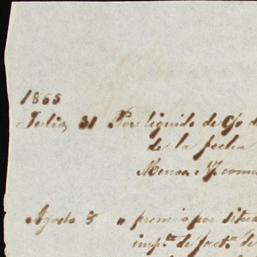 1865
Julio 31 Por liquido de c/o d
de la fecha
Menos
Agosto 5 " premio por
imp.te de fact.s de